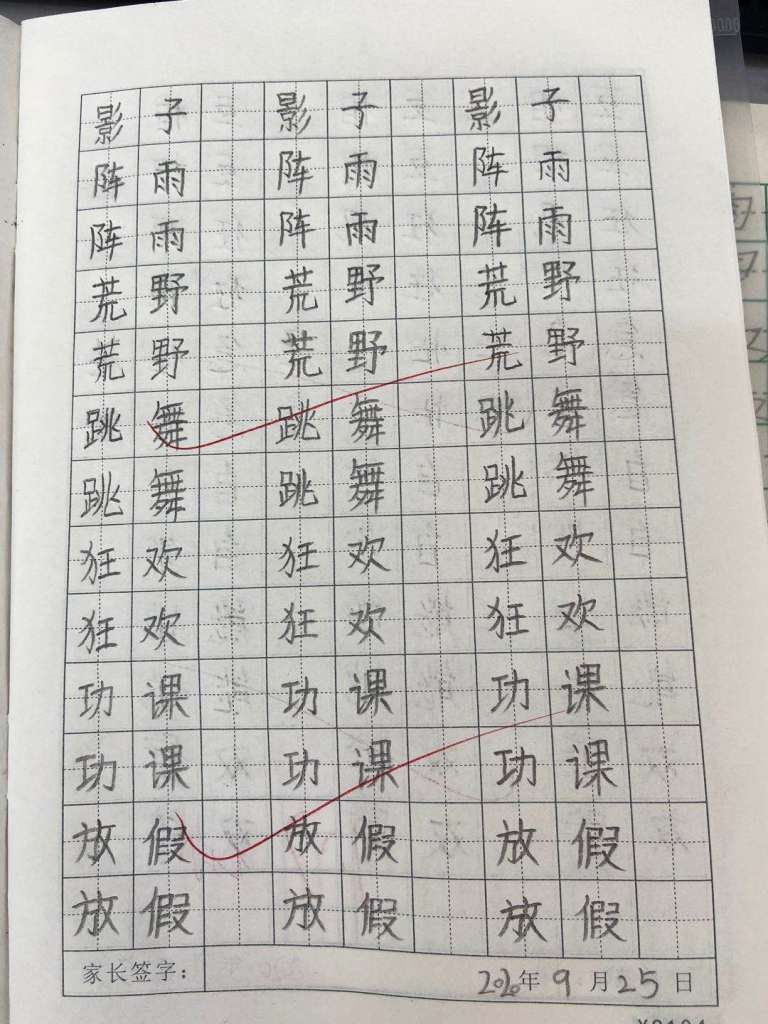 影子 影子 影子
阵雨 阵雨 阵雨
阵雨 阵雨 阵雨
荒野 荒野 荒野
荒野 荒野 荒野
跳舞 跳舞 跳舞
跳舞 跳舞 跳舞
狂欢 狂欢 狂欢
狂欢 狂欢 狂欢
功课 功课 功课
功课 功课 功课
放假 放假 放假
放假 放假 放假
家长签字: 2020年9月25日